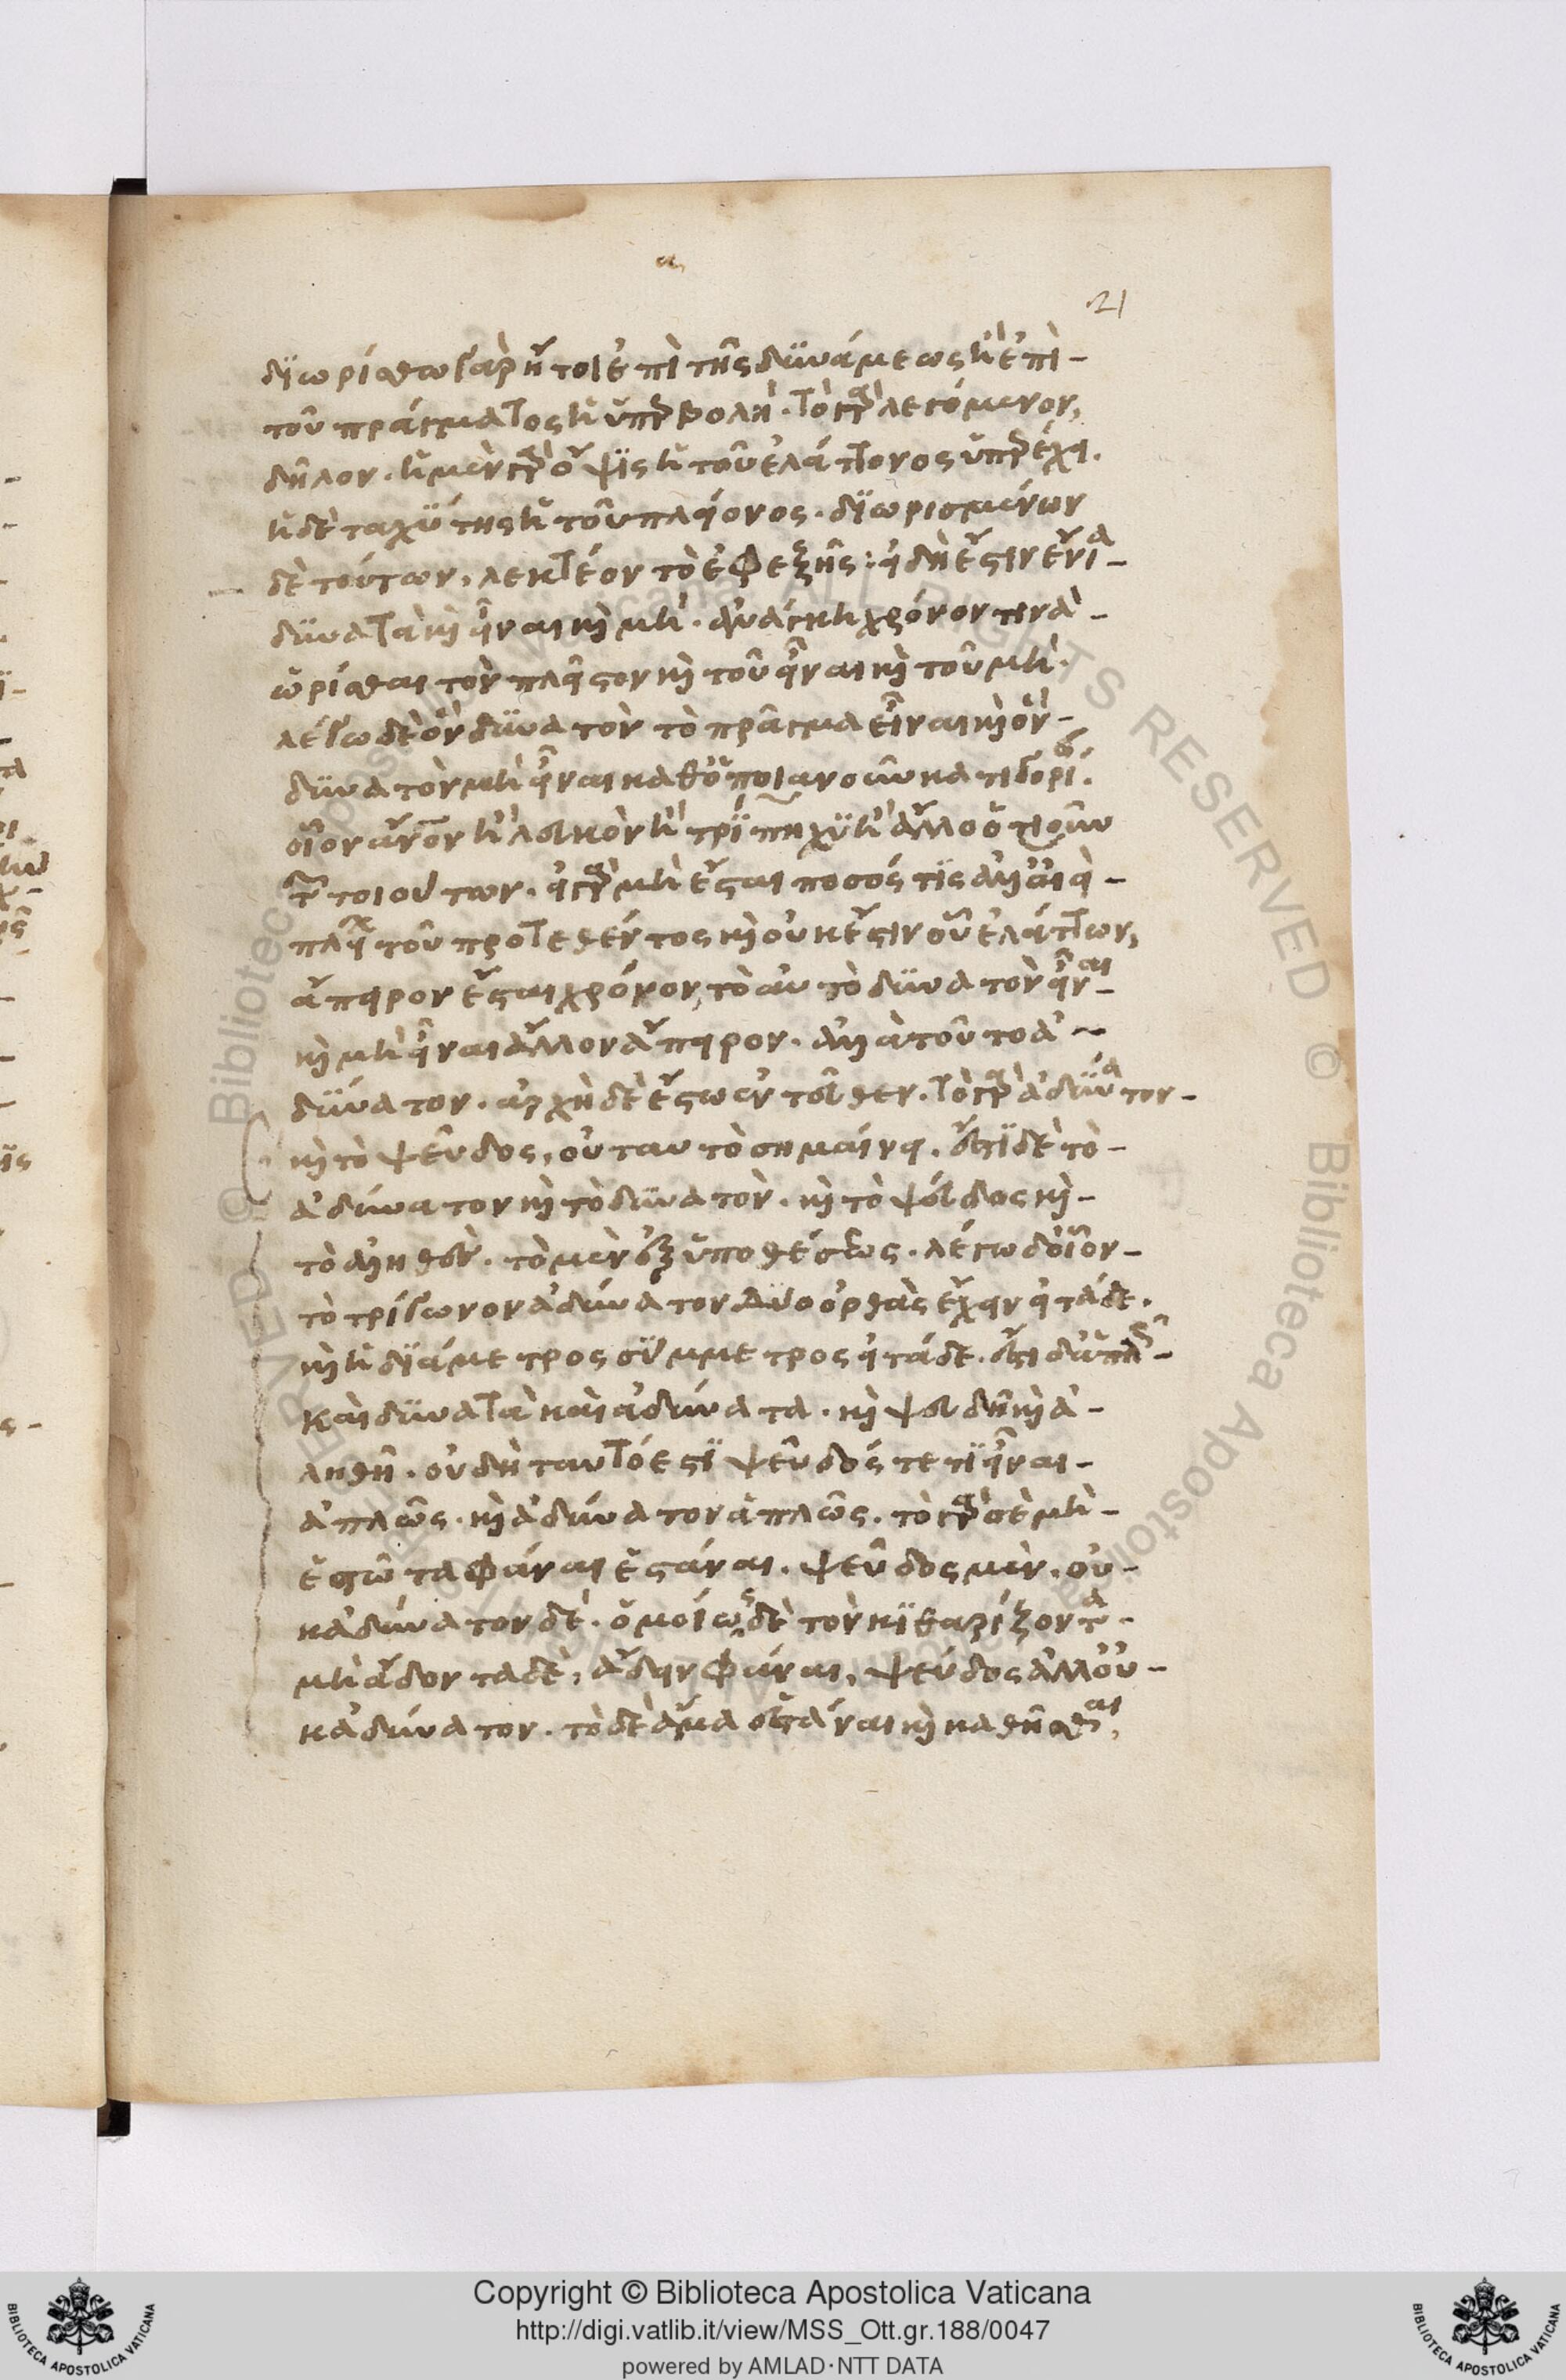 α,
21
διωρίσθω γὰρ ἤτοι ἐπὶ τῆς δυνάμεως ἢ ἐπὶ
τοῦ πράγματος ἡ ὑπερβολή. τὸ γὰρ λεγόμενον,
δῆλον. ἡ μὲν γὰρ ὄψις ἡ τοῦ ἐλάττονος ὑπερέχει.
ἡ δὲ ταχυτὴς ἡ τοῦ πλείονος. διωρισμένων
δὲ τούτων, λεκτέον τὸ ἐφεξῆς: εἰ δὴ ἔστιν ἔνια
δυνατὰ καὶ εἶναι καὶ μή. ἀνάγκη χρόνον τινὰ
ὡρίσθαι τὸν πλεῖστον καὶ τοῦ εἶναι καὶ τοῦ μή.
λέγω δὲ ὃν δυνατὸν τὸ πρᾶγμα εἶναι καὶ ὃν
δυνατὸν μὴ εἶναι καθ' ὁποιανοῦν κατηγορί.
οἷον ἄνον ἢ λευκὸν ἢ τρίπηχυ ἢ ἄλλο ὁτιοῦν
τῶν τοιούτων. εἰ γὰρ μὴ ἔσται ποσός τις ἀλλ' ἀεὶ
πλείων τοῦ προτεθέντος καὶ οὐκ ἔστιν οὗ ἐλάττων,
ἄπειρον ἔσται χρόνον, τὸ αὐτὸ δυνατὸν εἶναι
καὶ μὴ εἶναι ἄλλον ἄπειρον. ἀλλὰ τοῦτο ἀ
δύνατον. ἀρχὴ δὲ ἔστω ἐντεῦθεν. τὸ γὰρ ἀδύνατον
καὶ τὸ ψεῦδος, οὐ ταυτὸ σημαίνει. ἔστι δὲ τὸ
ἀδύνατον καὶ τὸ δυνατὸν. καὶ τὸ ψεῦδος καὶ
τὸ ἀληθὲς. τὸ μὲν ἐξ ὑποθέσεως. λέγω δ' οἷον
τὸ τρίγωνον ἀδύνατον δύο ὀρθὰς ἔχειν εἰ τάδε.
καὶ ἡ διάμετρος σύμμετρος εἰ τάδε. ἔστι δ' ἁπλῶς
καὶ δυνατὰ καὶ ἀδύνατα. καὶ ψευδῆ καὶ ἀ
ληθῆ. οὐ δὴ ταυτό ἐστι ψεῦδός τε τι εἶναι
ἁπλῶς. καὶ ἀδύνατον ἁπλῶς. τὸ γὰρ σὲ μὴ
ἑστῶτα φάναι ἑστάναι. ψεῦδος μὲν. οὐ
κ ἀδύνατον δέ. ὁμοίως δὲ τὸν κιθαρίζοντα
μὴ ἄδοντα δὲ, ἄδειν φάναι, ψεῦδος ἀλλ' οὐ
κ ἀδύνατον. τὸ δὲ ἅμα ἑστάναι καὶ καθῆσθαι,
Copyright © Biblioteca Apostolica Vaticana
http://digi.vatlib.it/view/MSS_Ott.gr.188/0047
powered by AMLAD·NTT DATA
BIBLIOTECA APOSTOLICA VATICANA
BIBLIOTECA APOSTOLICA VATICANA